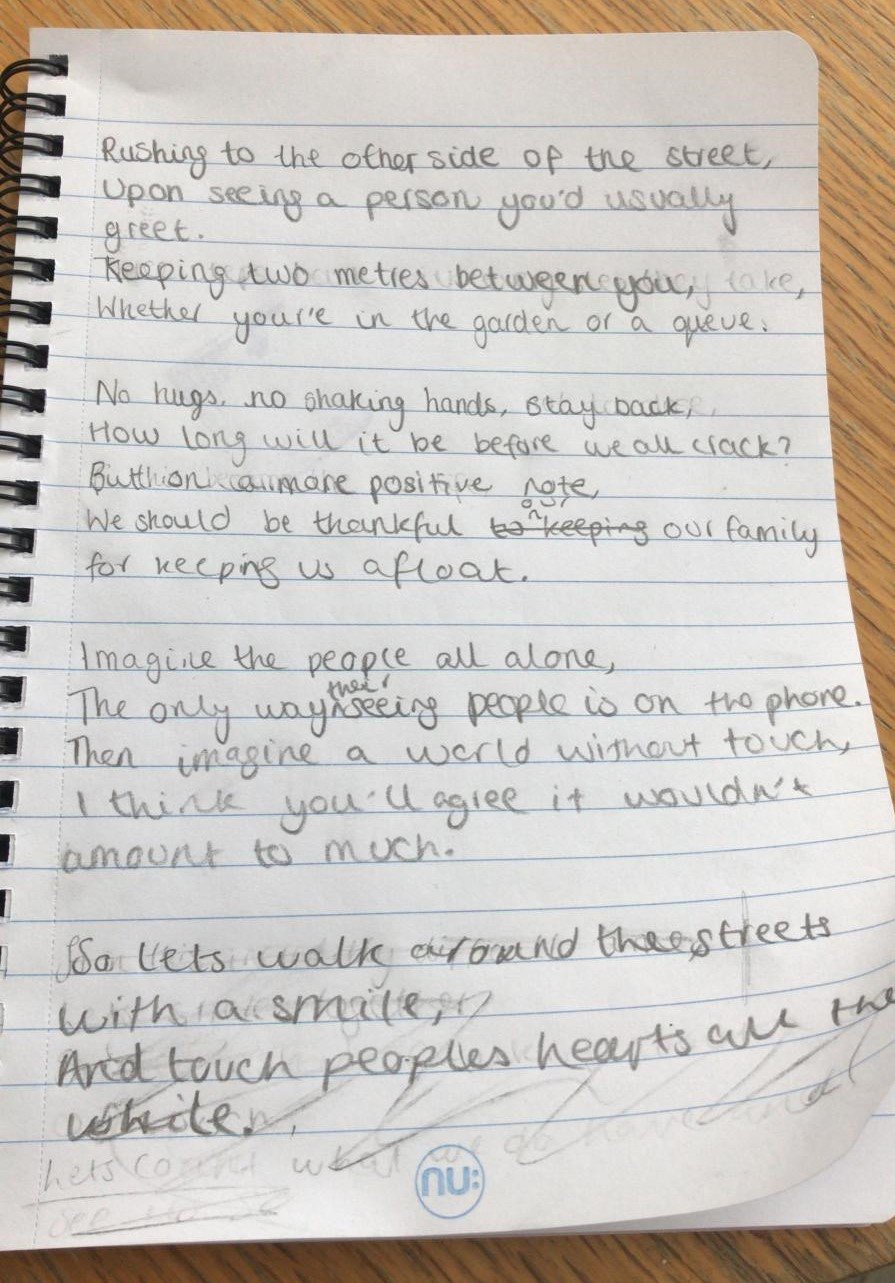 Rushing to the other side of the street,
Upon seeing a person you'd usually
greet.
Keeping two metres between you,
Whether your'e in the garden or a queue.
No hugs, no shaking hands, stay back,
How long will it be before we all crack?
But on a more positive note,
our
We should be thankful to keeping our family
for keeping us afloat.
Imagine the people all alone,
their
The only way seeing people is on the phone.
Then imagine a world without touch,
I think you'll agree it wouldn't
amount to much.
So lets walk around the streets
with a smile,
And touch peoples hearts all the
while.
lets what we do have and
see
nu: